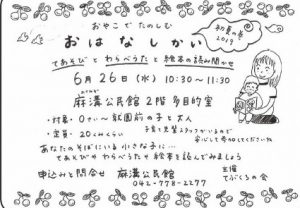 おやこで たのしむ
おはなしかい
初夏の巻
2019
てあそびと わらべうたと 絵本の読み聞かせ
6月26日(水) 10:30～11:30
麻溝公民館 2階 多目的室
・対象・ 0さい～就園前の子と大人
・定員・ 20くみくらい
子育て支援スタッフがいるので
安心して参加してくださいね
あなたのそばにいる小さな子に…
てあそびや わらべうたや 絵本を読んでみましょう
申込みと問合せ 麻溝公民館
042-778-2277
主催
てぶくろの会